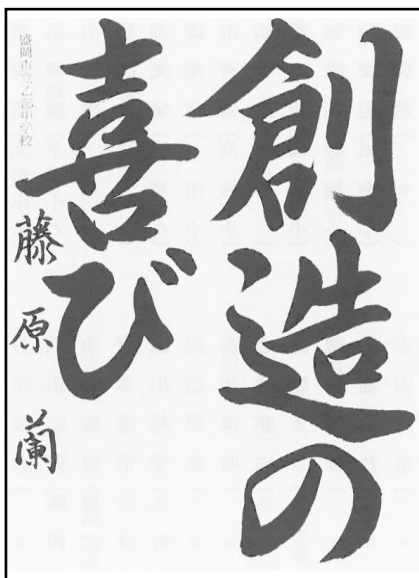 創造の
喜び
盛岡市立乙部中学校
藤原蘭